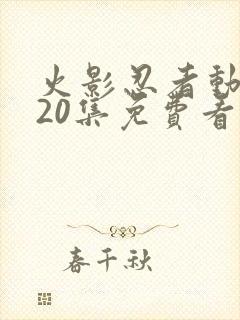 火影忍者動
20集免費看
春千秋